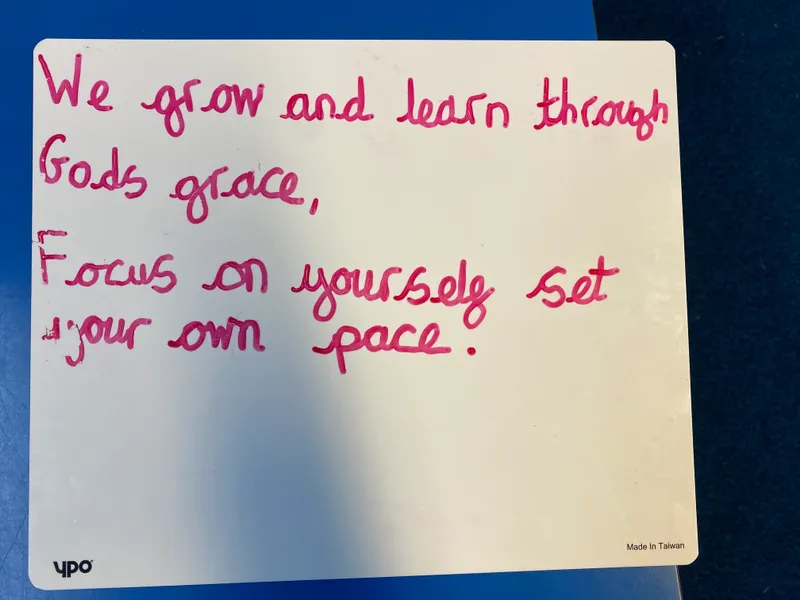 We grow and learn through
Gods grace,
Focus on yourself set
your own pace.
ypo
Made In Taiwan